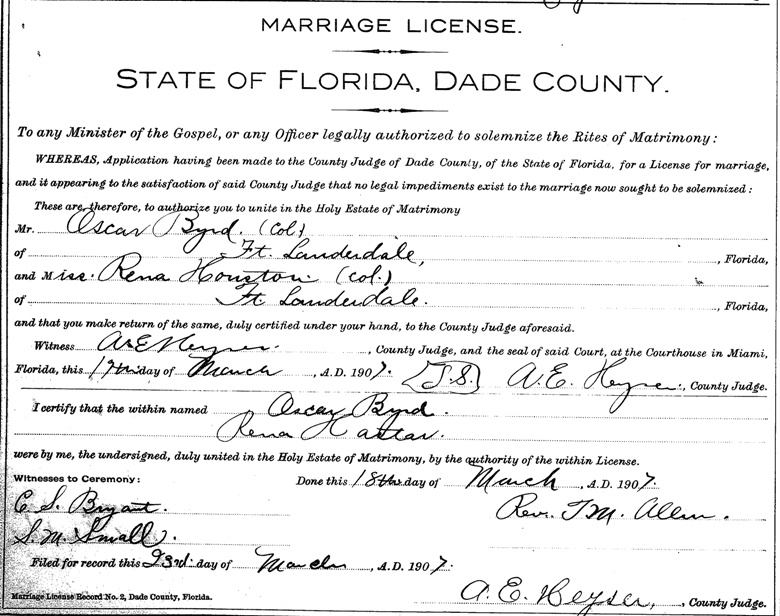 MARRIAGE LICENSE.
STATE OF FLORIDA, DADE COUNTY.
To any Minister of the Gospel, or any Officer legally authorized to solemnize the Rites of Matrimony:
WHEREAS, Application having been made to the County Judge of Dade County, of the State of Florida, for a License for marriage,
and it appearing to the satisfaction of said County Judge that no legal impediments exist to the marriage now sought to be solemnized:
These are, therefore, to authorize you to unite in the Holy Estate of Matrimony
Mr. Oscar Byrd. (Col)
of Ft. Lauderdale, , Florida,
and Miss. Rena Houston (Col.)
of Ft Lauderdale. , Florida,
and that you make return of the same, duly certified under your hand, to the County Judge aforesaid.
Witness A.E. Heyser. , County Judge, and the seal of said Court, at the Courthouse in Miami,
Florida, this day of March , A.D. 1907. A. E. Heyser, County Judge.
I certify that the within named Oscar Byrd.
Rena
were by me, the undersigned, duly united in the Holy Estate of Matrimony, by the authority of the within License.
Witnesses to Ceremony: Done this 18th day of March , A.D. 1907.
C. S. Bryant. Rev. T. M. Allen.
S. M. Small.
Filed for record this 23rd day of March , A.D. 1907.
A. E. Heyser, , County Judge.
Marriage License Record No. 2, Dade County, Florida.